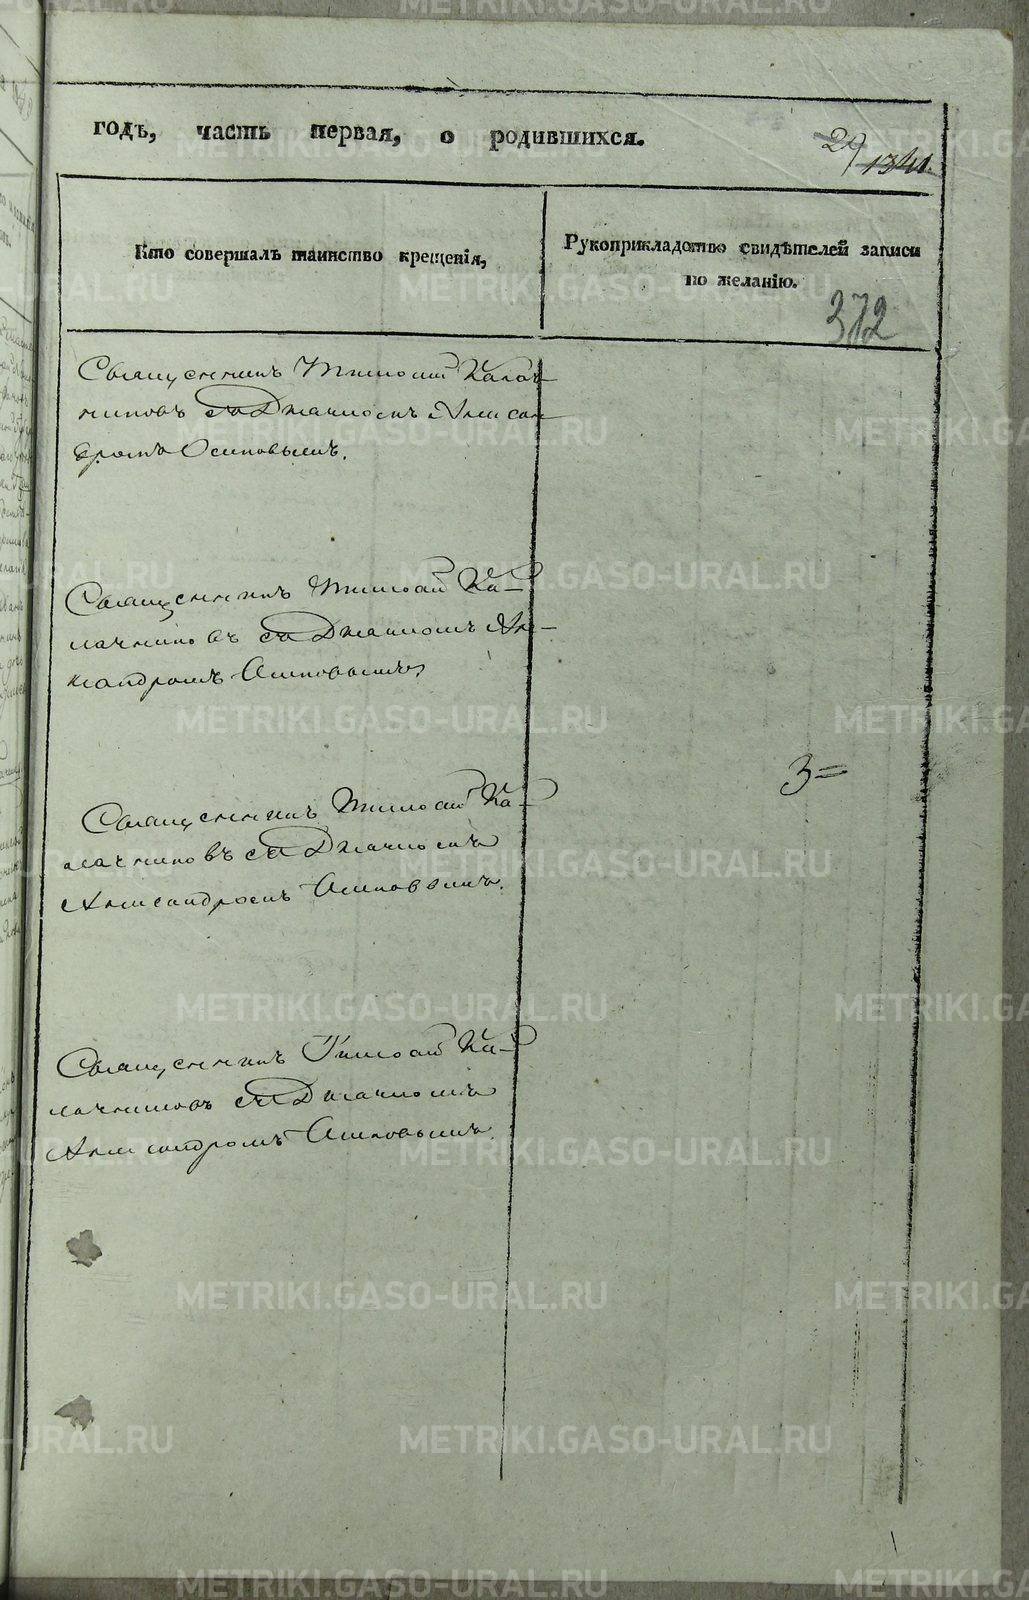 годъ, часть первая, о родившихся.
29
1341.
Кто совершалъ таинство крещенія,
Рукоприкладство свидѣтелей записи
по желанію.
372
Священникъ Тимоѳей Калач-
никовъ съ Дьячкомъ Алексан-
дромъ Осиповымъ.
Священникъ Тимоѳей Ка-
лачниковъ съ Дьячкомъ Але-
ксандромъ Осиповымъ.
3=
Священникъ Тимоѳей Ка-
лачниковъ съ Дьячкомъ
Александромъ Осиповымъ.
Священникъ Тимоѳей Ка-
лачниковъ съ Дьячкомъ
Александромъ Осиповымъ.
METRIKI.GASO-URAL.RU